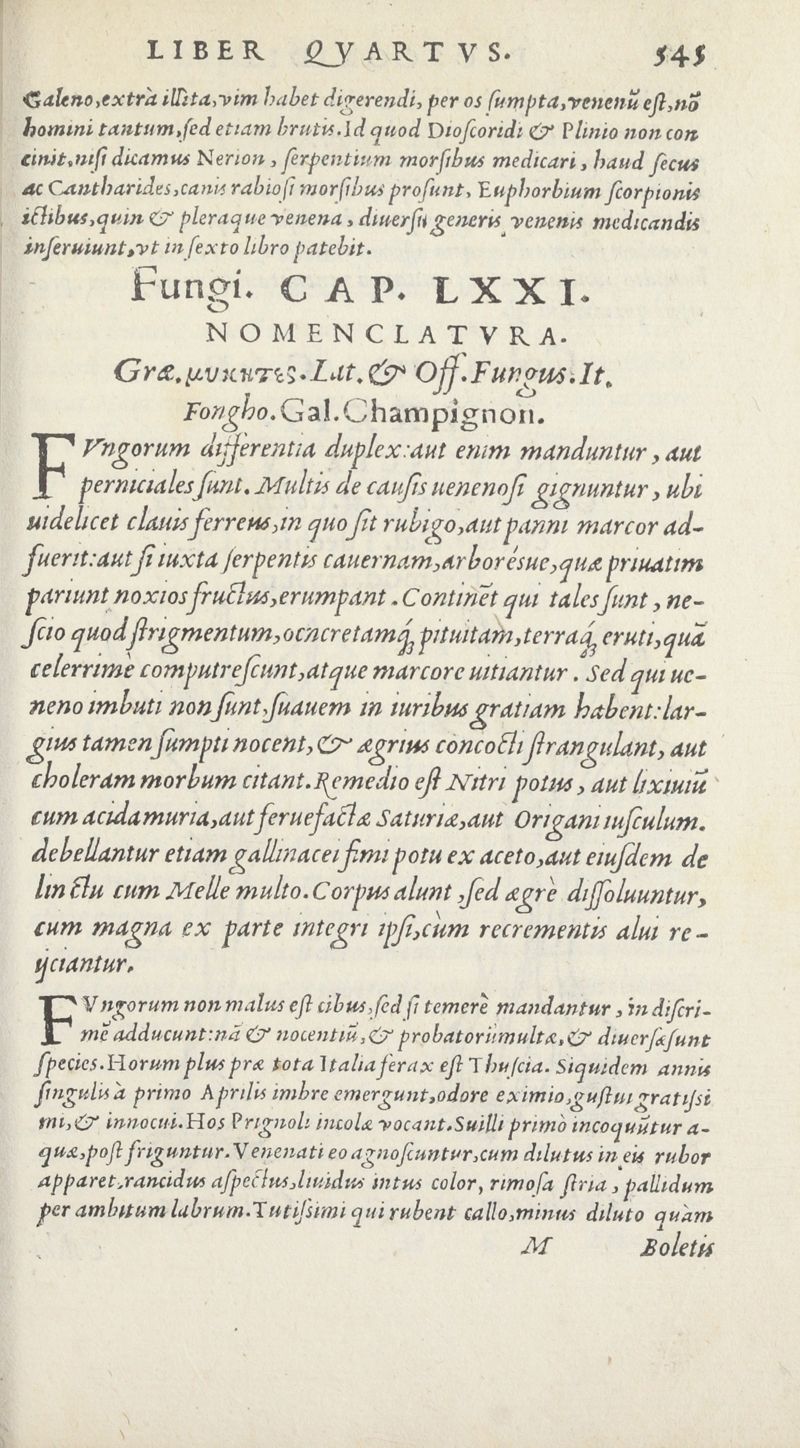 LIBER QVARTVS. 545
Galeno,extrà illita,vim habet digerendi, per os ſumpta,venenũ eſt,nõ
homini tantum,ſed etiam brutis.Id quod Dioſcoridi & Plinio non con
cinit,niſi dicamus Nerion, ſerpentium morſibus medicari, haud ſecus
ac Cantharides,canis rabioſi morſibus proſunt, Euphorbium ſcorpionis
ictibus,quin & pleraque venena, diuerſii generis venenis medicandis
inſeruiunt,vt in ſexto libro patebit.
Fungi. CAP. LXXI.
NOMENCLATVRA.
Græ.μυκητες.Lat.& Off.Fungus.It.
Fongho.Gal.Champignon.
FVngorum differentia duplex:aut enim manduntur, aut
perniciales ſunt. Multis de cauſis uenenoſi gignuntur, ubi
uidelicet clauis ferreus,in quo ſit rubigo,aut panni marcor ad-
fuerit:aut ſi iuxta ſerpentis cauernam,arborésue,quæ priuatim
pariunt noxios fructus,erumpant. Continẽt qui tales ſunt, ne-
ſcio quod ſtrigmentum,ocncretamq́; pituitam,terraq́; eruti,quã
celerrimè computreſcunt,atque marcore uitiantur. Sed qui ue-
neno imbuti non ſunt,ſuauem in iuribus gratiam habent:lar-
gius tamen ſumpti nocent,& ægrius concocti ſtrangulant, aut
choleram morbum citant.Remedio eſt Nitri potus, aut lixiuiũ
cum acida muria,aut feruefactæ Saturiæ,aut Origani iuſculum.
debellantur etiam gallinacei fimi potu ex aceto,aut eiuſdem de
linctu cum Melle multo.Corpus alunt,ſed ægrè diſſoluuntur,
cum magna ex parte integri ipſi,cùm recrementis alui re-
ijciantur.
FVngorum non malus eſt cibus,ſed ſi temerè mandantur, in diſcri-
mẽ adducunt:nã & nocentiũ,& probatoriimultæ,& diuerſæ ſunt
ſpecies.Horum plus præ tota Italia ferax eſt Thuſcia. Siquidem annis
ſingulis à primo Aprilis imbre emergunt,odore eximio,guſtui gratiſsi
mi,& innocui.Hos Prignoli incolæ vocant.Suilli primò incoquũtur a-
qua,poſt friguntur.Venenati eo agnoſcuntur,cum dilutus in eis rubor
apparet,rancidus aſpectus,liuidus intus color, rimoſa ſtria, pallidum
per ambitum labrum.Tutiſsimi qui rubent callo,minus diluto quàm
M Boletis